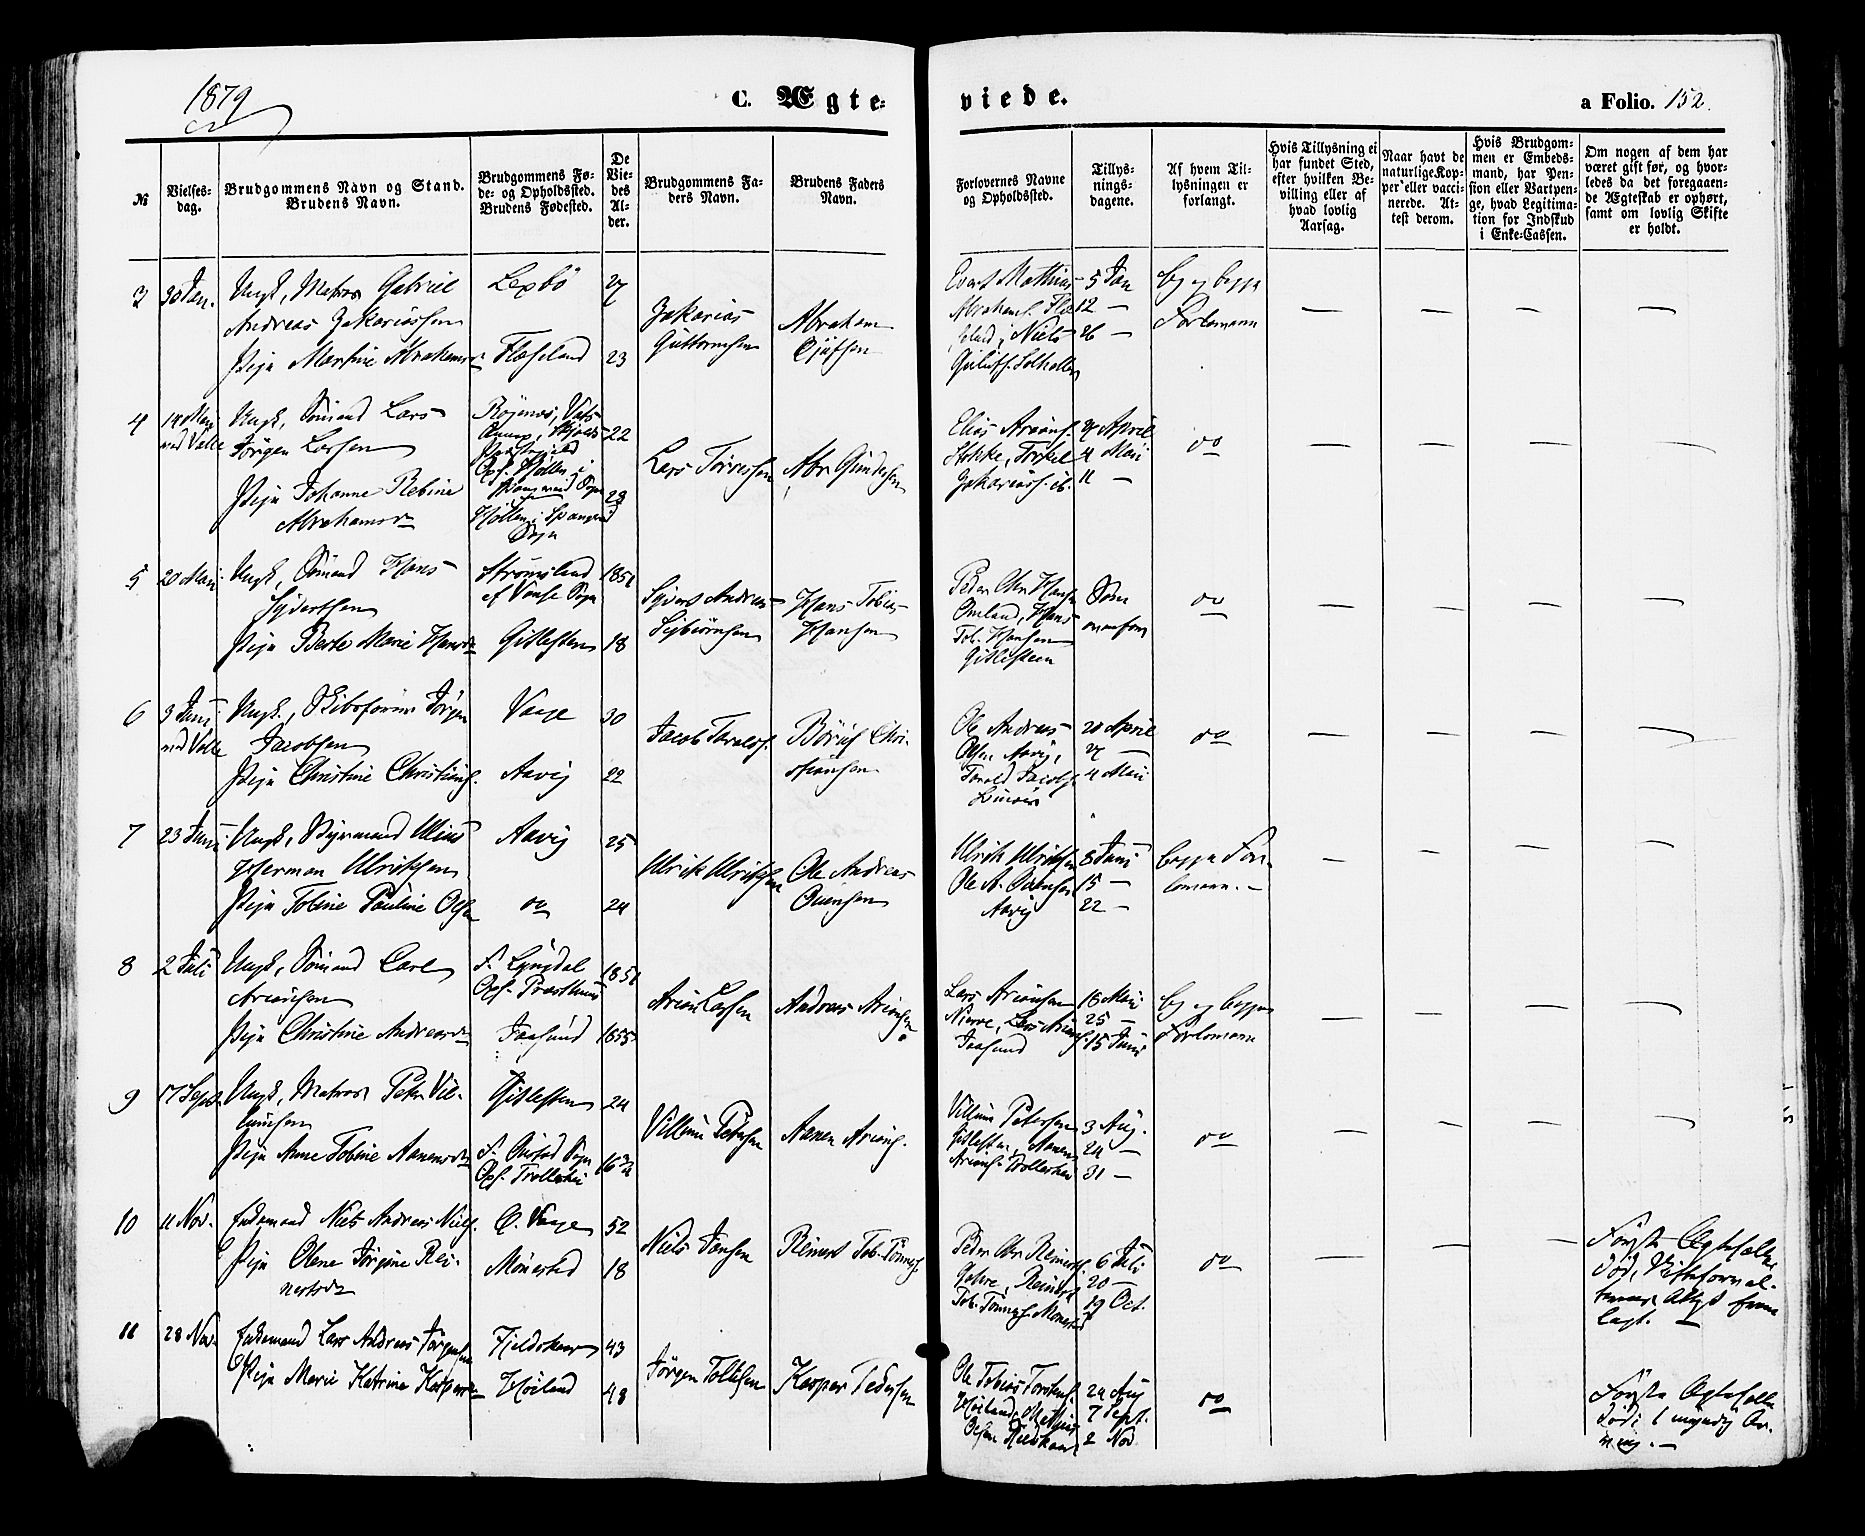 1879
C. Ægte-
viede.
a Folio. 152.
№
Vielses-
dag.
Brudgommens Navn og Stand.
Brudens Navn.
Brudgommens Fø-
de- og Opholdssted.
Brudens Fødested.
De
Vie-
des
Al-
der.
Brudgommens Fa-
ders Navn.
Brudens Faders
Navn.
Forlovernes Navne
og Opholdssted.
Tillys-
nings-
dagene.
Af hvem Til-
lysningen er
forlangt.
Hvis Tillysning ei
har fundet Sted,
efter hvilken Be-
villing eller af
hvad lovlig
Aarsag.
Naar havt de
naturlige Kop-
per eller vacci-
nerede. At-
test derom.
Hvis Brudgom-
men er Embeds-
mand, har Pen-
sion eller Vartpen-
ge, hvad Legitima-
tion for Indskud
i Enke-Cassen.
Om nogen af dem har
været gift før, og hvor-
ledes da det foregaaen-
de Ægteskab er ophørt,
samt om lovlig Skifte
er holdt.
3
30 Jan.
Ungk, Matros Gabriel
Andreas Zakariassen
Pige Martine Abrahamsd
Lexbö
Flæseland
27
23
Zakarias
Guttormsen
Abraham
Evert Mathias
Abrahams. Flæ-
seland, Niels
5 Jan
12 —
26 —
bg og begge
Forlomænn
4
14 Mai
ved Valle
Ungk, Sömand Lars
Jörgen Larsen
Pige Johanne Rebine
Abrahamsd
22
23
Lars Torressen
Abr Gundersen
Elias Arians.
Stokke, Torkel
Zakarias. ib.
27 April
4 Mai
11 —
do
5
20 Mai
Ungk, Sömand Hans
Syvertsen
Pige Berte Marie Hansd
Strömsland
af Vanse Sogn
Gitlesten
1851
18
Syvert Andreas
Sigbiörnsen
Hans Tobias
Hansen
Peder Chr Hansen
Omland, Hans
Tob. Hansen
Gitlesteen
Som
ovenfor
do
6
3 Juni
ved Valle
Ungk., Skibsförer Jörgen
Jacobsen
Pige Christine Christians.
Vaage
Aavig
30
22
Jacob Taralds.
Börius Chri-
stiansen
Ole Andreas
Olsen Aavig,
Tarald Jacobs.
20 April
27 —
4 Mai
do
7
23 Juni
Ungk, Styrmand Ulrius
Herman Ulriksen
Pige Tobine Pauline Olsen
Aavig
do
25
24
Ulrik Ulriksen
Ole Andreas
Ouensen
Ulrik Ulriksen
Ole A. Ouensen
Aavig
8 Juni
15 —
22 —
begge For-
lomænn. —
8
2 Juli
Ungk, Sömand Carl
Ariansen
Pige Christine Andreasd
F. Lyngdal
Oph. Præsthuus
Jaasund
1851
1855
Arian Larsen
Andreas Ariansen
Lars Ariansen
Jaasund
18 Mai
25 —
15 Juni
bg og begge
Forlomænn
9
17 Sept.
Ungk, Matros Peter Vil-
lumsen
Pige Anne Tobine Aanensd
Gitlesten
F. Ousted Sogn
Oph. Trollerhei
24
16 3/4
Villum Petersen
Aanen Arians.
Villum Petersen
Gitlesten, Aanen
Arians. Trollerhei
3 Aug.
24 —
31 —
do
10
11 Nov.
Enkemand Niels Andreas Niels.
Pige Olene Jörgine Rei-
nertsd
O. Vaage
Mönestad
52
18
Niels Jansen
Reinert Tob. Tönnes.
Peder Chr. Reinerts.
Reinert
Tob. Tönnes. Mönestad
6 Juli
20 —
19 Oct.
do
Förste Ægtefælle
död, Skifteforval-
terens Attest frem-
lagt. —
11
28 Nov.
Enkemand Lars Andreas Jörgensen
Pige Marie Katrine Kaspersd
Fjeldskaar
Höiland
43
48
Jörgen Tollefsen
Kasper Pedersen
Ole Tobias Torkels.
Höiland, Mathias
Olsen Fjeldskaar
24 Aug
7 Sept.
2 Nov
do
Förste Ægtefælle
död; 1 myndig Ar-
ving. —